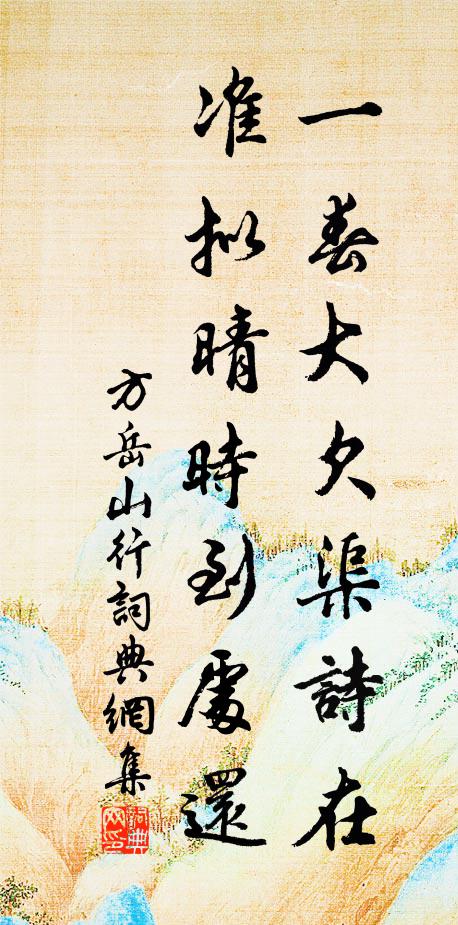 一春大欠渠詩在
准拟晴時到處還
方岳山行詞典網集
詞典網印